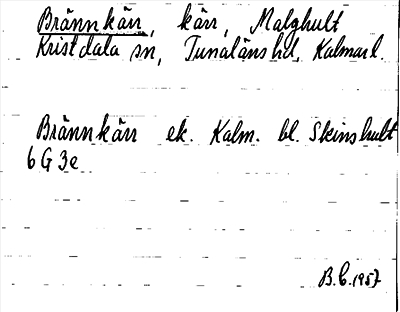 Brännkärr, kärr, Malghult
Kristdala sn, Tunaläns hd, Kalmar l.
Brännkärr ek. Kalm. bl. Skinshult
6 G 3e
B.C. 1957